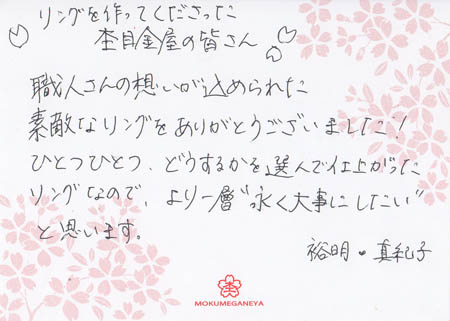 リングを作ってくださった
杢目金屋の皆さん
職人さんの想いが込められた
素敵なリングをありがとうございました!
ひとつひとつ、どうするかを選んで仕上がった
リングなので、より一層“永く大事にしたい”
と思います。
裕明・真紀子
MOKUMEGANEYA